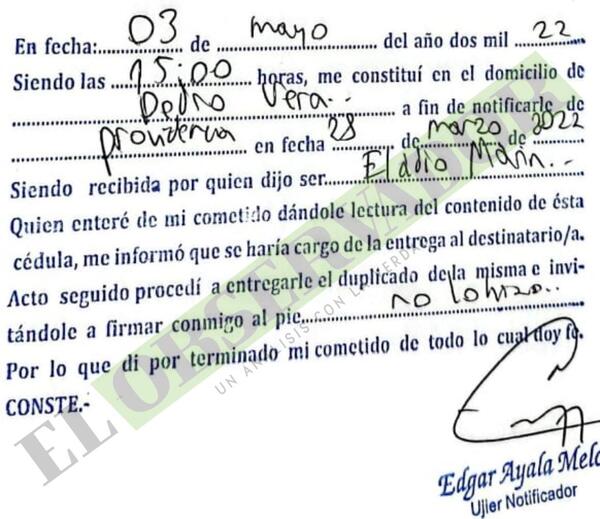 En fecha: 03 de mayo del año dos mil 22
Siendo las 15:00 horas, me constituí en el domicilio de
Pedro Vera a fin de notificarle de
providencia en fecha 28 de marzo de 2022
Siendo recibida por quien dijo ser Eladio Marin.-
Quien enteré de mi cometido dándole lectura del contenido de ésta
cédula, me informó que se haría cargo de la entrega al destinatario/a.
Acto seguido procedí a entregarle el duplicado de la misma e invi-
tándole a firmar conmigo al pie no lo hizo
Por lo que di por terminado mi cometido de todo lo cual doy fe.
CONSTE.-
Edgar Ayala Melg
Ujier Notificador
EL OBSERVADOR
UN ANÁLISIS CON LA VERDAD